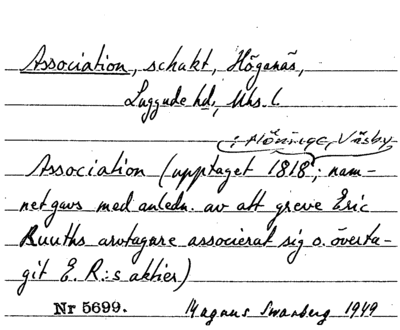 Association, schakt, Höganäs,
Luggude hd, Mhs. l
i Plöninge, Väsby
Association (upptaget 1818; nam-
net gavs med anledn. av att greve Eric
Ruuths arvtagare associerat sig o. överta-
git E. R:s aktier)
Nr 5699. Magnus Swanberg 1949